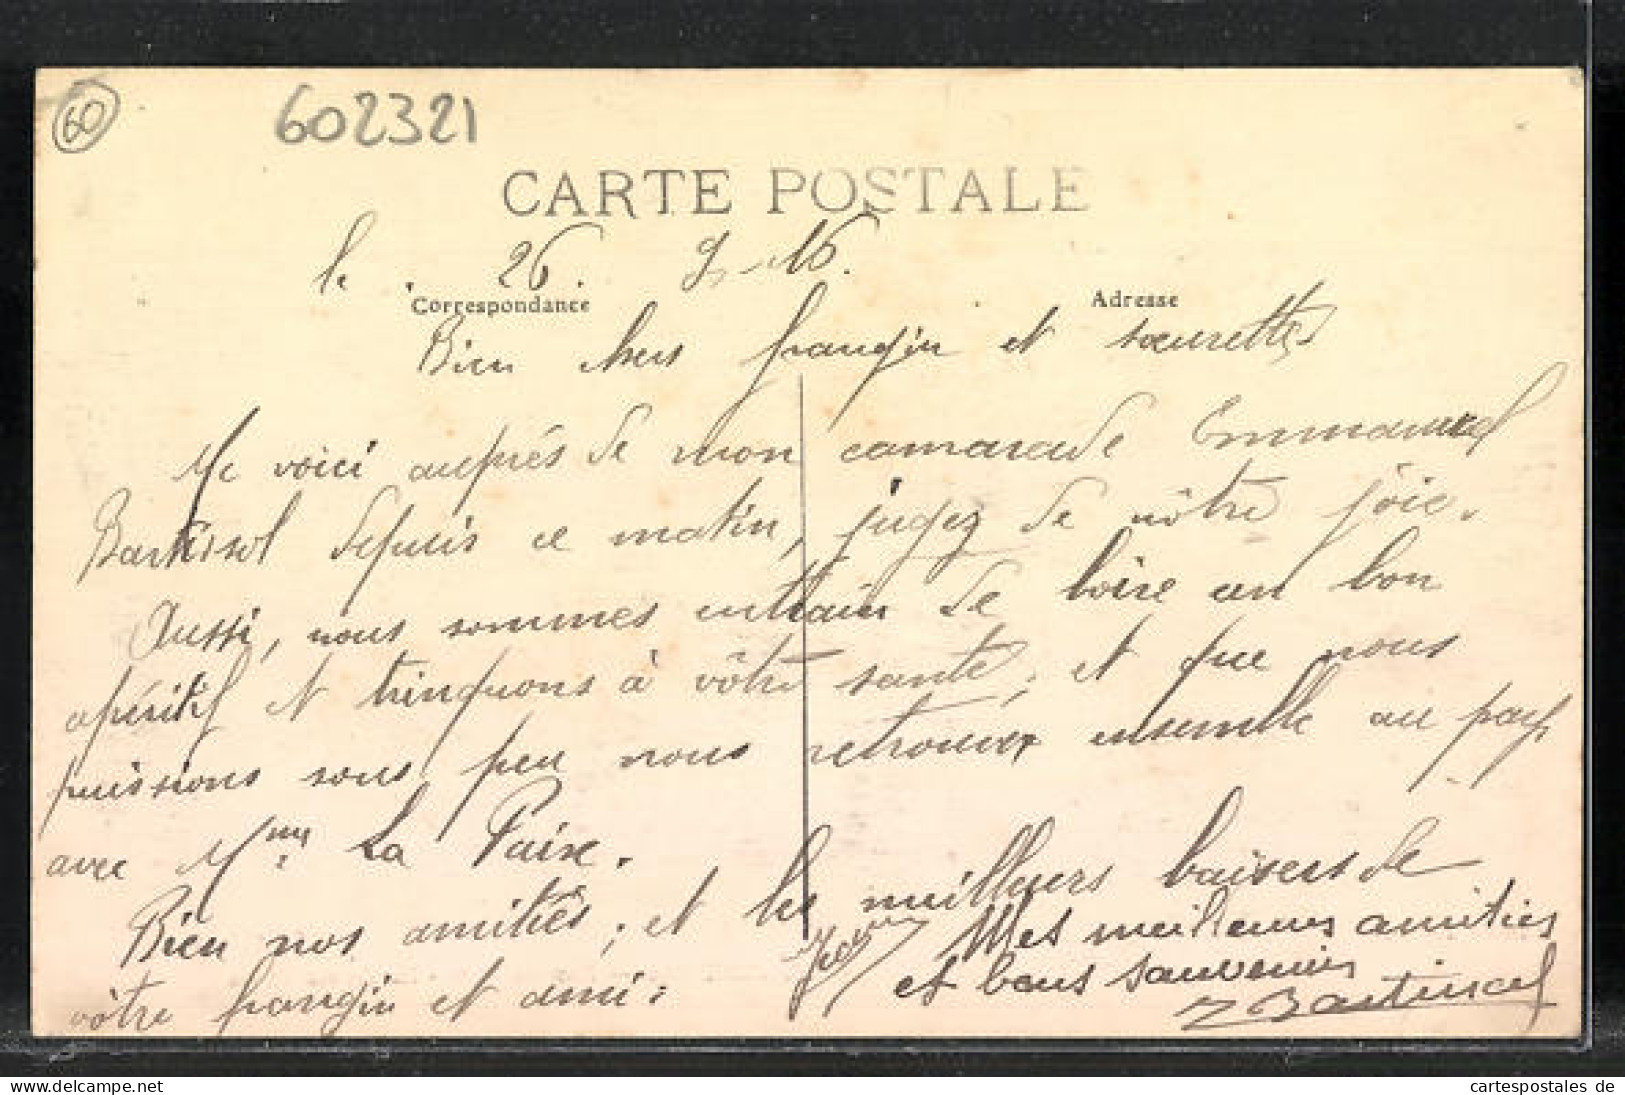 60
602321
CARTE POSTALE
le . 26. 9-16.
Correspondance
Adresse
Bien chers frangin et sœurettes
Me voici auprés de mon camarade Emmanuel
depuis ce matin, jugez de nôtre joie.
Aussi, nous sommes entrain de boire un bon
apéritif et trinquons à vôtre santé, et que nous
puissions sous peu nous retrouver ensemble au pays
avec Mme La Paix.
Bien nos amitiés, et les meilleurs baisers de
vôtre frangin et ami:
Mes meilleures amitiés
et bons souvenirs
cartespostales de